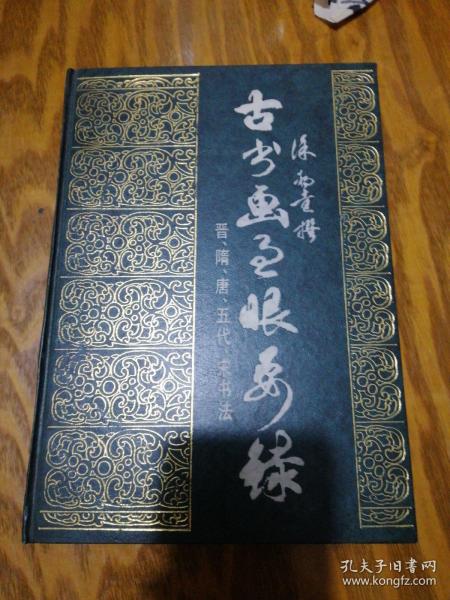 徐邦達撰
古书画过眼要録
晋、隋、唐、五代、宋书法
孔夫子旧书网
www.kongfz.com